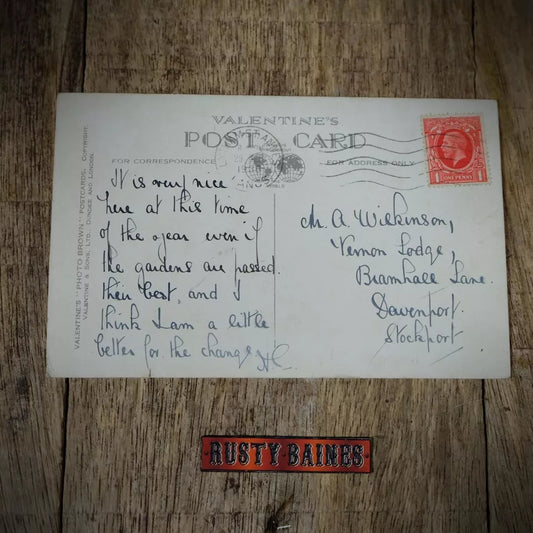 VALENTINE'S
POST CARD
FOR CORRESPONDENCE
FOR ADDRESS ONLY
It is very nice
here at this time
of the year even if
the gardens are passed
their best, and I
think I am a little
better for the change
Mr. A. Wilkinson,
Vernon Lodge,
Bramhall Lane.
Davenport.
Stockport
ONE PENNY
VALENTINE'S "PHOTO BROWN" POSTCARDS. COPYRIGHT.
VALENTINE & SONS, LTD., DUNDEE AND LONDON.
RUSTY BAINES